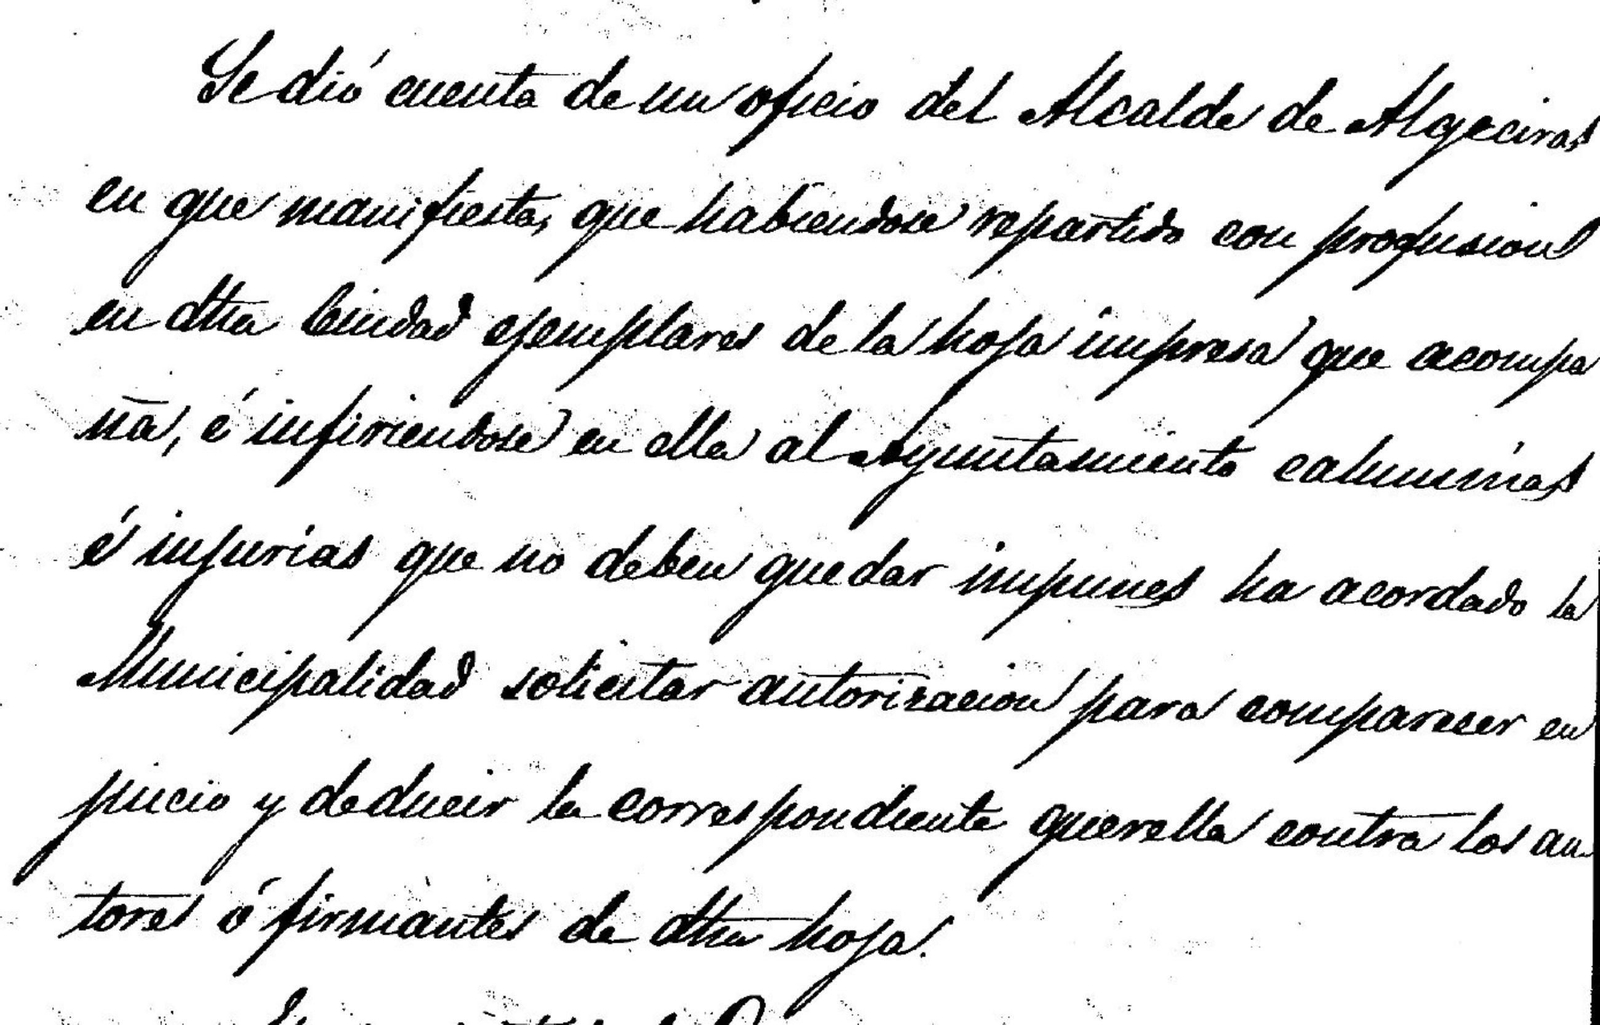 Se dió cuenta de un oficio del Alcalde de Algeciras
en que manifiesta, que habiendose repartido con profusion
en dha Ciudad ejemplares de la hoja impresa que acompa
ña, é infiriendose en ella al Ayuntamiento calumnias
é injurias que no deben quedar impunes ha acordado la
Municipalidad solicitar autorizacion para comparecer en
juicio y deducir la correspondiente querella contra los au
tores ó firmantes de dha hoja.